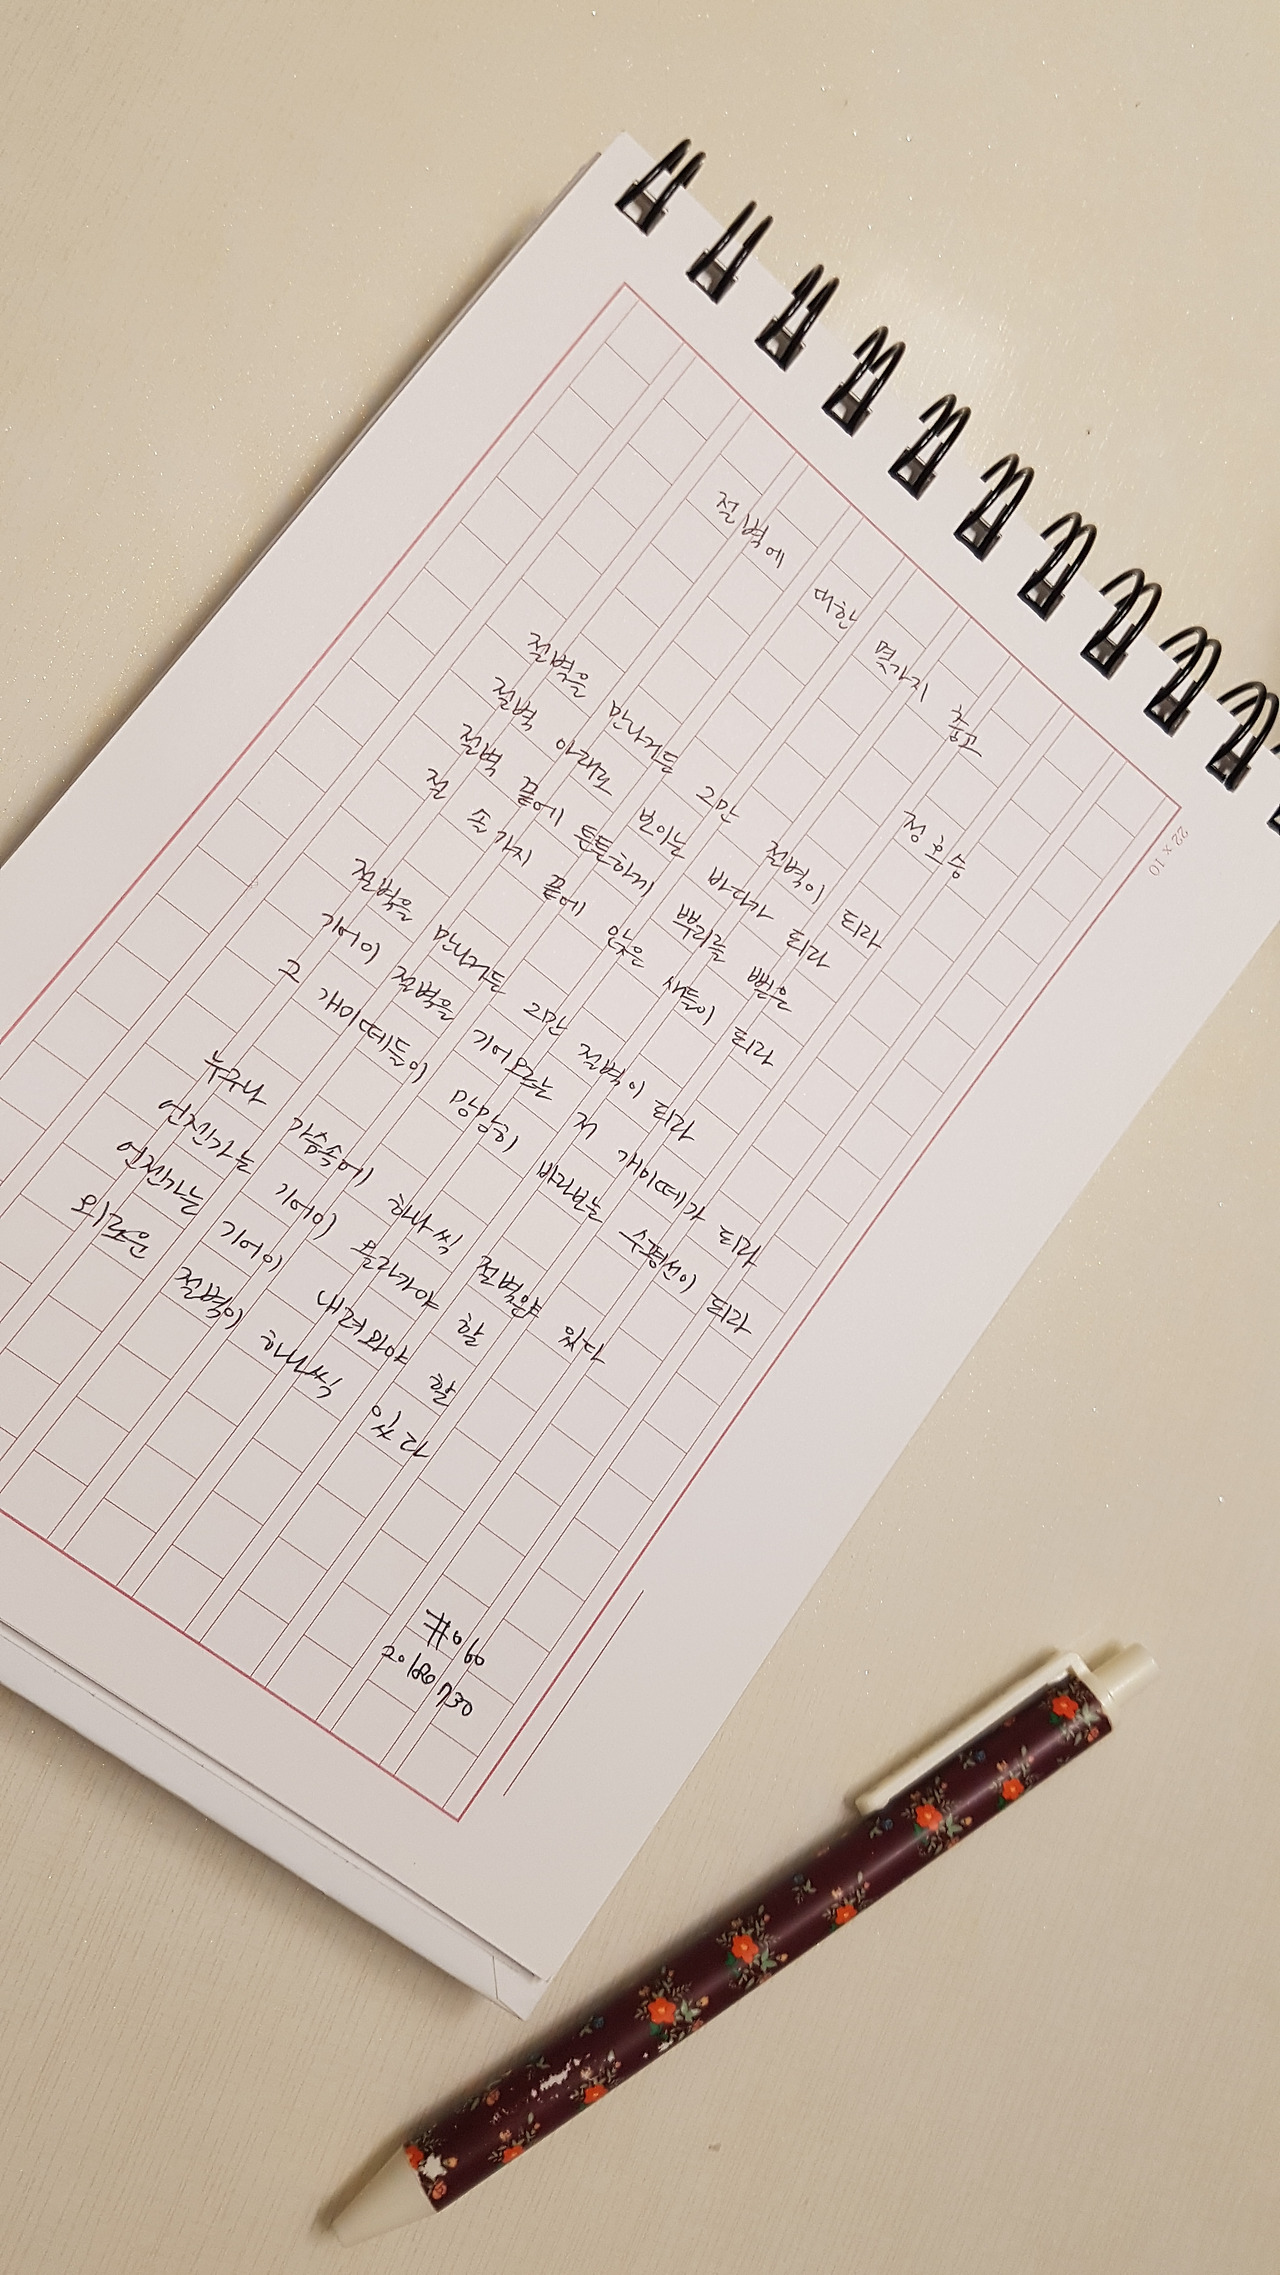 절벽에 대한 몇가지 충고
정호승
절벽을 만나거든 그만 절벽이 되라
절벽 아래로 보이는 바다가 되라
절벽 끝에 튼튼하게 뿌리를 뻗은
절 솔가지 끝에 앉은 새들이 되라
절벽을 만나거든 그만 절벽이 되라
기어이 절벽을 기어오르는 저 개미떼가 되라
그 개미떼들이 망망히 바라보는 수평선이 되라
누구나 가슴속에 하나씩 절벽은 있다
언젠가는 기어이 올라가야 할
언젠가는 기어이 내려와야 할
외로운 절벽이 하나씩 있다
#060
20180730
22 x 10